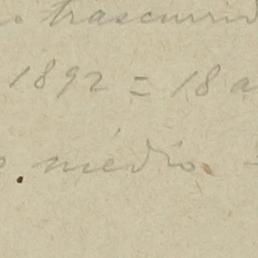 trascurrid
1892 = 18 a
medio